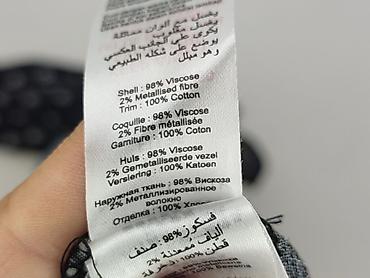 يغسل مع الوان مماثلة
يغسل مقلوب
يكوى على الجانب العكسي
يوضع على شكله الطبيعي
وهو مبلل
Shell : 98% Viscose
2% Metallised fibre
Trim : 100% Cotton
Coquille : 98% Viscose
2% Fibre métallisée
Garniture : 100% Coton
Huls : 98% Viscose
2% Gemetalliseerde vezel
Versiering : 100% Katoen
Наружная ткань : 98% Вискоза
2% Металлизированное
волокно
Отделка : 100%
فسكوز %98 : صنف
ألياف معدنة %2
قطن %100 :